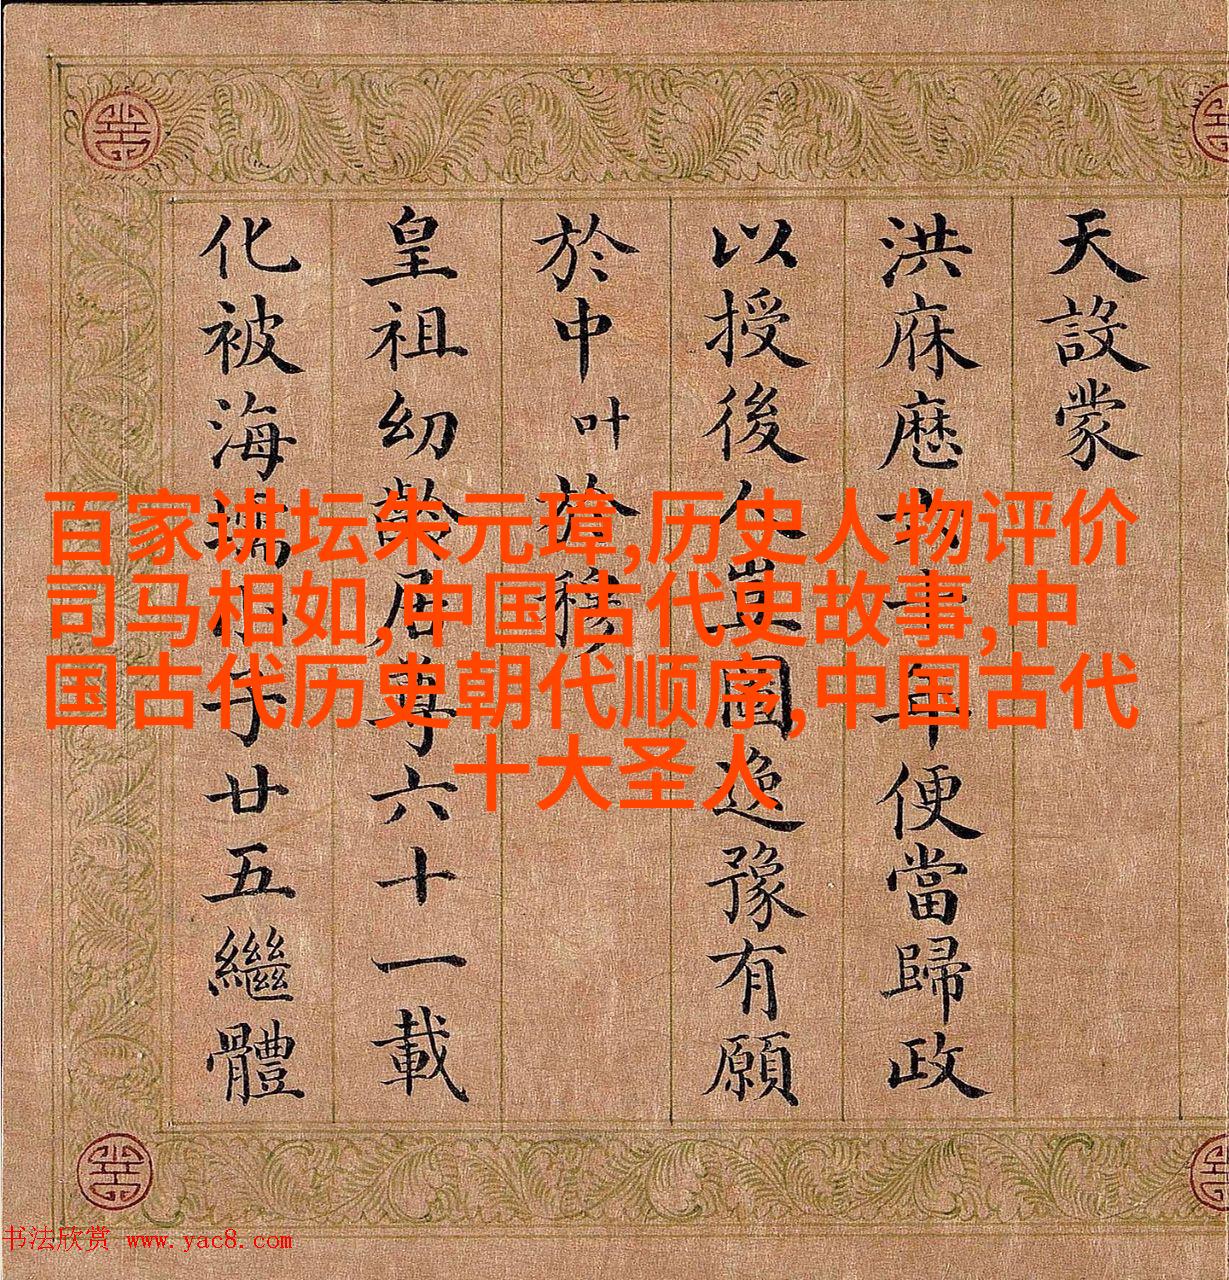 天設蒙
洪庥歷年便當歸政
以授後人豈圖逸豫有願
於中叶於穆
皇祖幼齡居尊六十一載
化被海壖小子廿五繼體
百家讲坛朱元璋,历史人物评价
司马相如,中国古代史故事,中
国古代历史朝代顺序,中国古代
十大圣人
书法欣赏 www.yac8.com